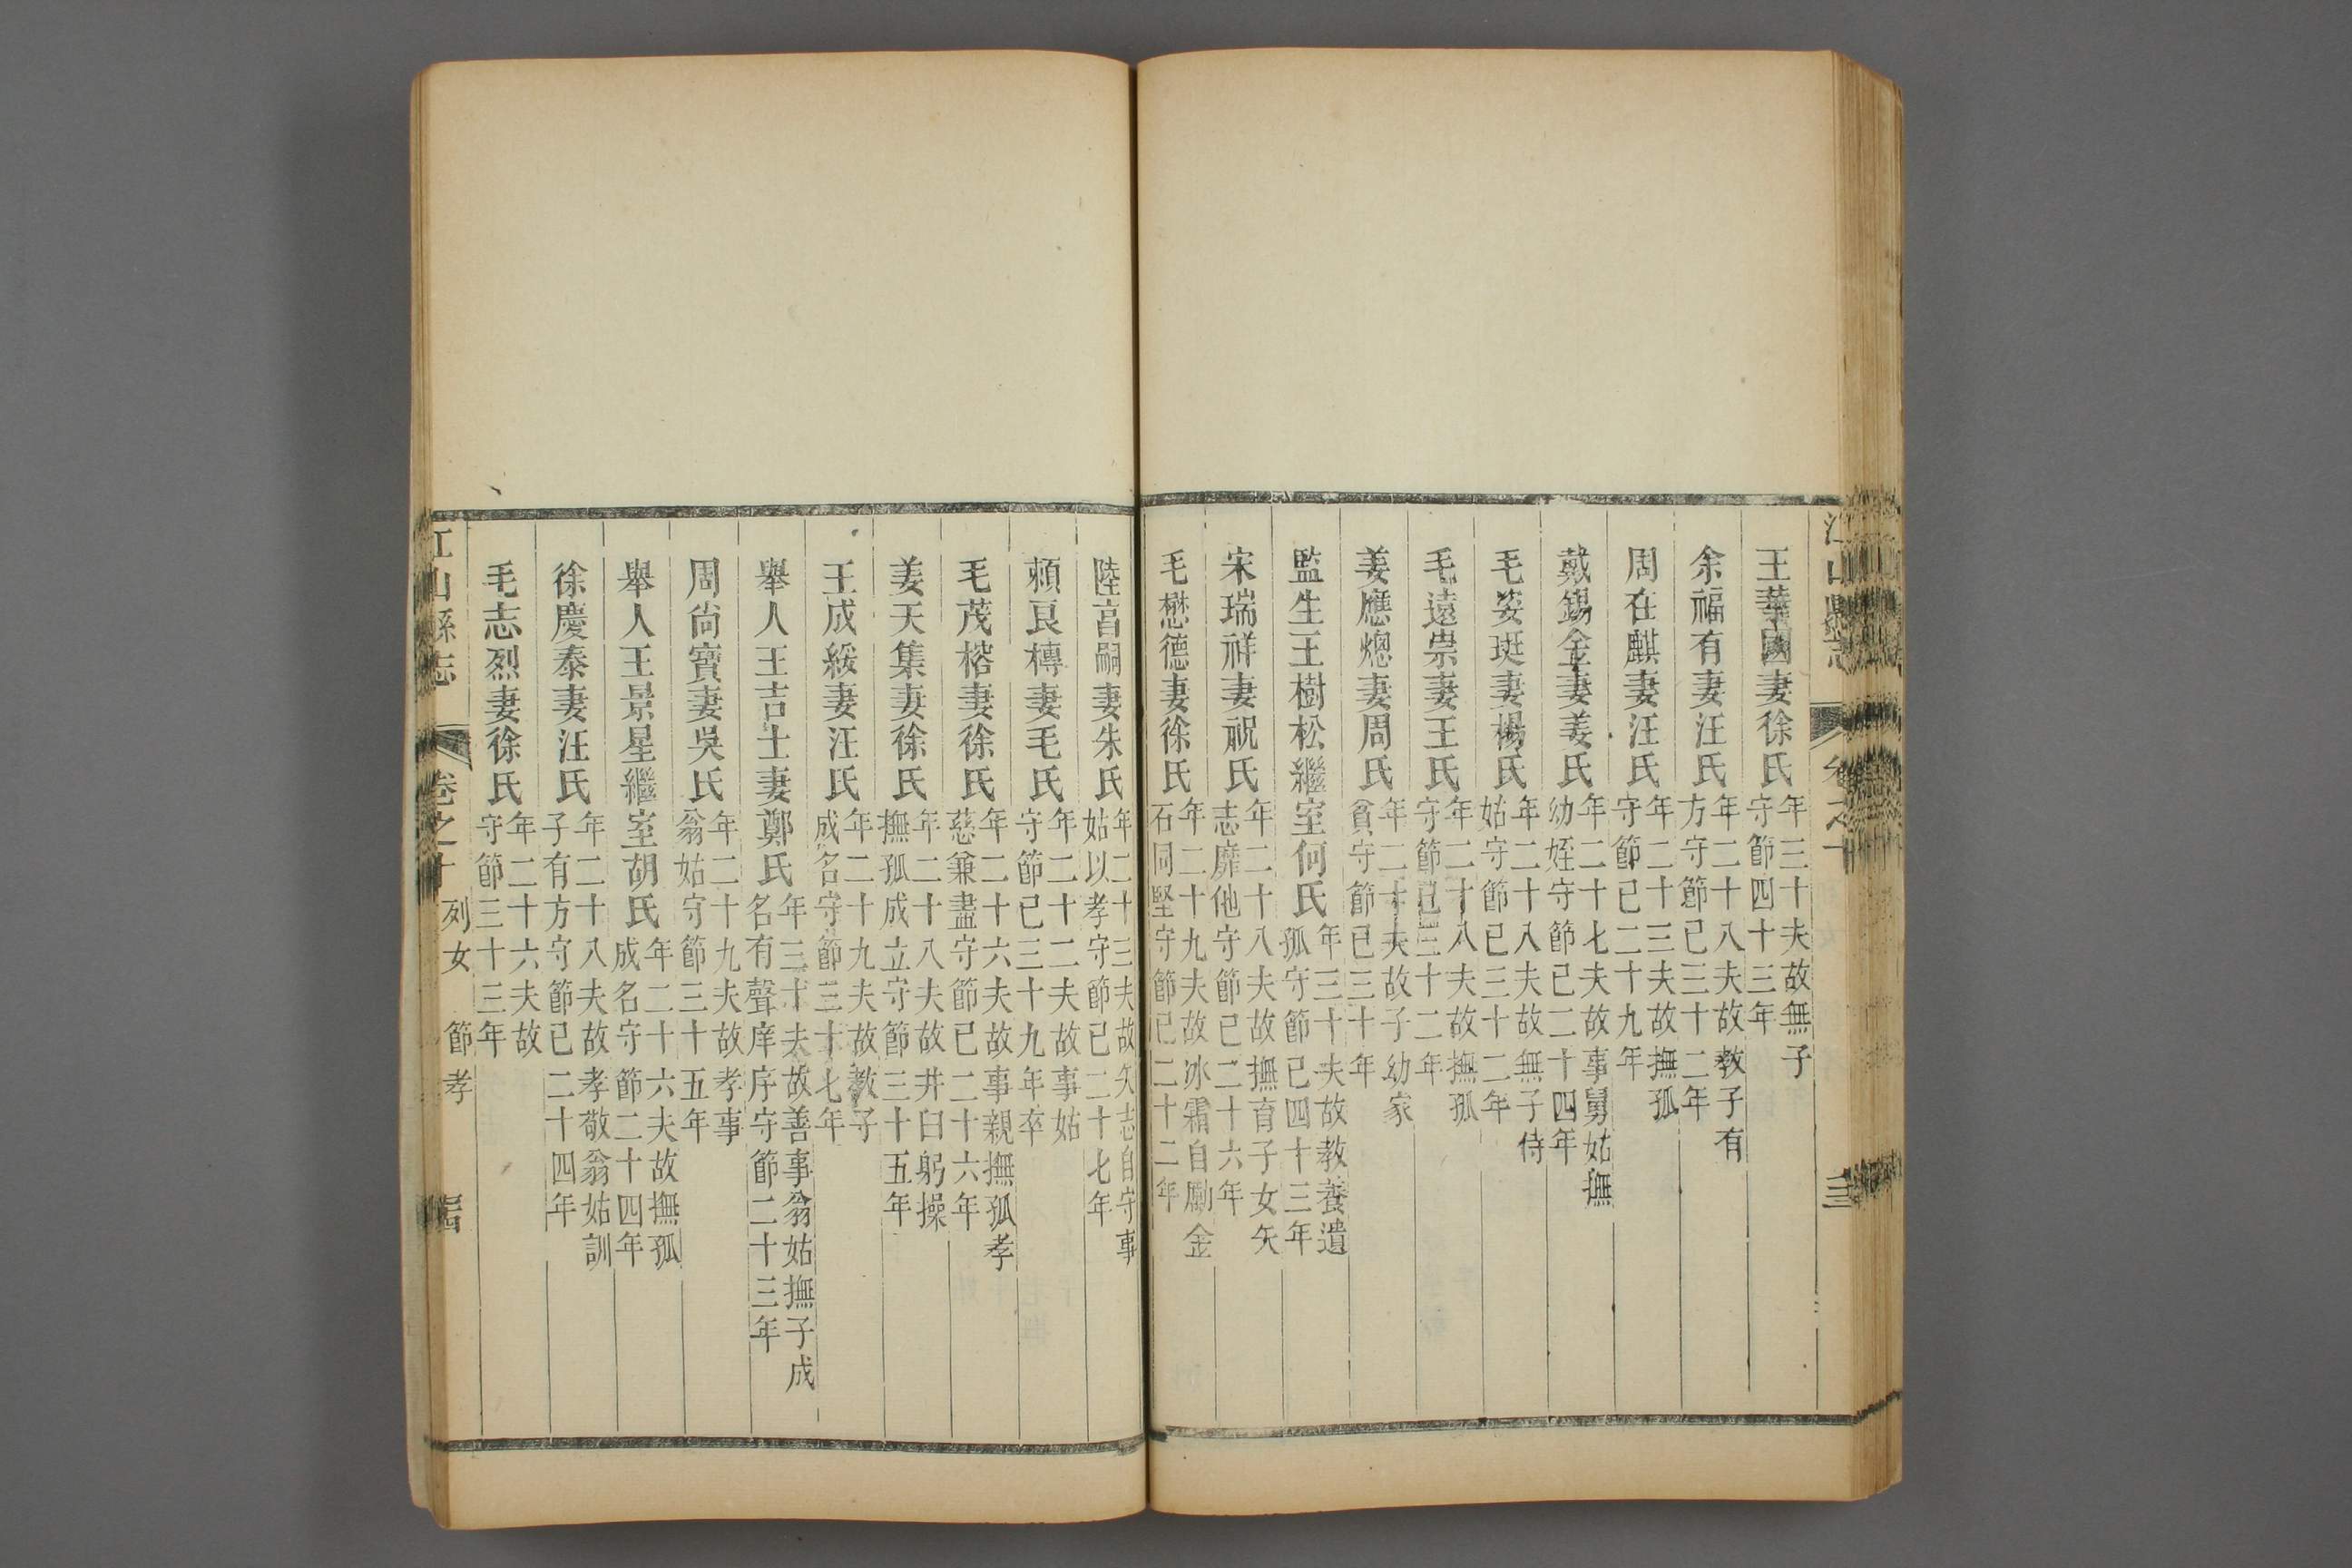 王華國妻徐氏年三十夫故無子守節四十三年
余福有妻汪氏年二十八夫故教子有方守節已三十二年
周在麒妻汪氏年二十三夫故撫孤守節已二十九年
戴錫金妻姜氏年二十七夫故事舅姑撫幼姪守節已二十四年
毛姿珽妻楊氏年二十八夫故無子侍姑守節已三十二年
毛遠崇妻王氏年二十八夫故撫孤守節已三十二年
姜應熜妻周氏年二十夫故子幼家貧守節已三十年
監生王樹松繼室何氏年三十夫故教養遺孤守節已四十三年
宋瑞祥妻祝氏年二十八夫故撫育子女矢志靡他守節已二十六年
毛懋德妻徐氏年二十九夫故冰霜自勵金石同堅守節已二十二年
陸言嗣妻朱氏年二十三夫故矢志自守事姑以孝守節已二十七年
賴良槫妻毛氏年二十二夫故事姑守節已三十九年卒
毛茂榙妻徐氏年二十六夫故事親撫孤孝慈兼盡守節已二十六年
姜天集妻徐氏年二十八夫故井臼躬操撫孤成立守節三十五年
王成綏妻汪氏年二十九夫故教子成名守節三十七年
舉人王吉士妻鄭氏年三十夫故善事翁姑撫子成名有聲庠序守節二十三年
周尙寶妻吳氏年二十九夫故孝事翁姑守節三十五年
舉人王景星繼室胡氏年二十六夫故撫孤成名守節二十四年
徐慶泰妻汪氏年二十八夫故孝敬翁姑訓子有方守節已二十四年
毛志烈妻徐氏年二十六夫故守節三十三年
江山縣志 卷之十 列女 節孝